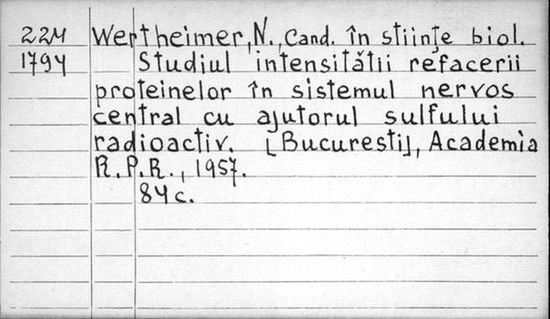 224 Wertheimer, N., Cand. în stiințe biol.
1794 Studiul intensitătii refacerii
proteinelor în sistemul nervos
central cu ajutorul sulfului
radioactiv. [Bucuresti], Academia
R.P.R., 1957.
84 c.